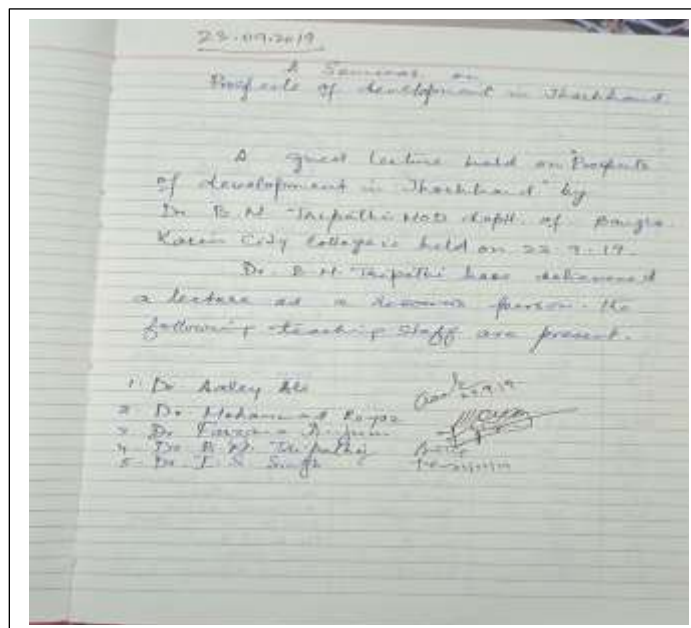 23.09.2019
A Seminar on
Prospects of development in Jharkhand
A guest lecture held on "Prospects
of development in Jharkhand" by
Dr B.N. Tripathi HOD deptt. of
Karim City College is held on 23-9-19.
Dr. B.N. Tripathi have delivered
a lecture as a resource person. the
following teaching staff are present.
1. Dr Ali
2. Dr. Mohammad
3. Dr Farzana Anjum
4. Dr B.N. Tripathi
5. Dr. Singh